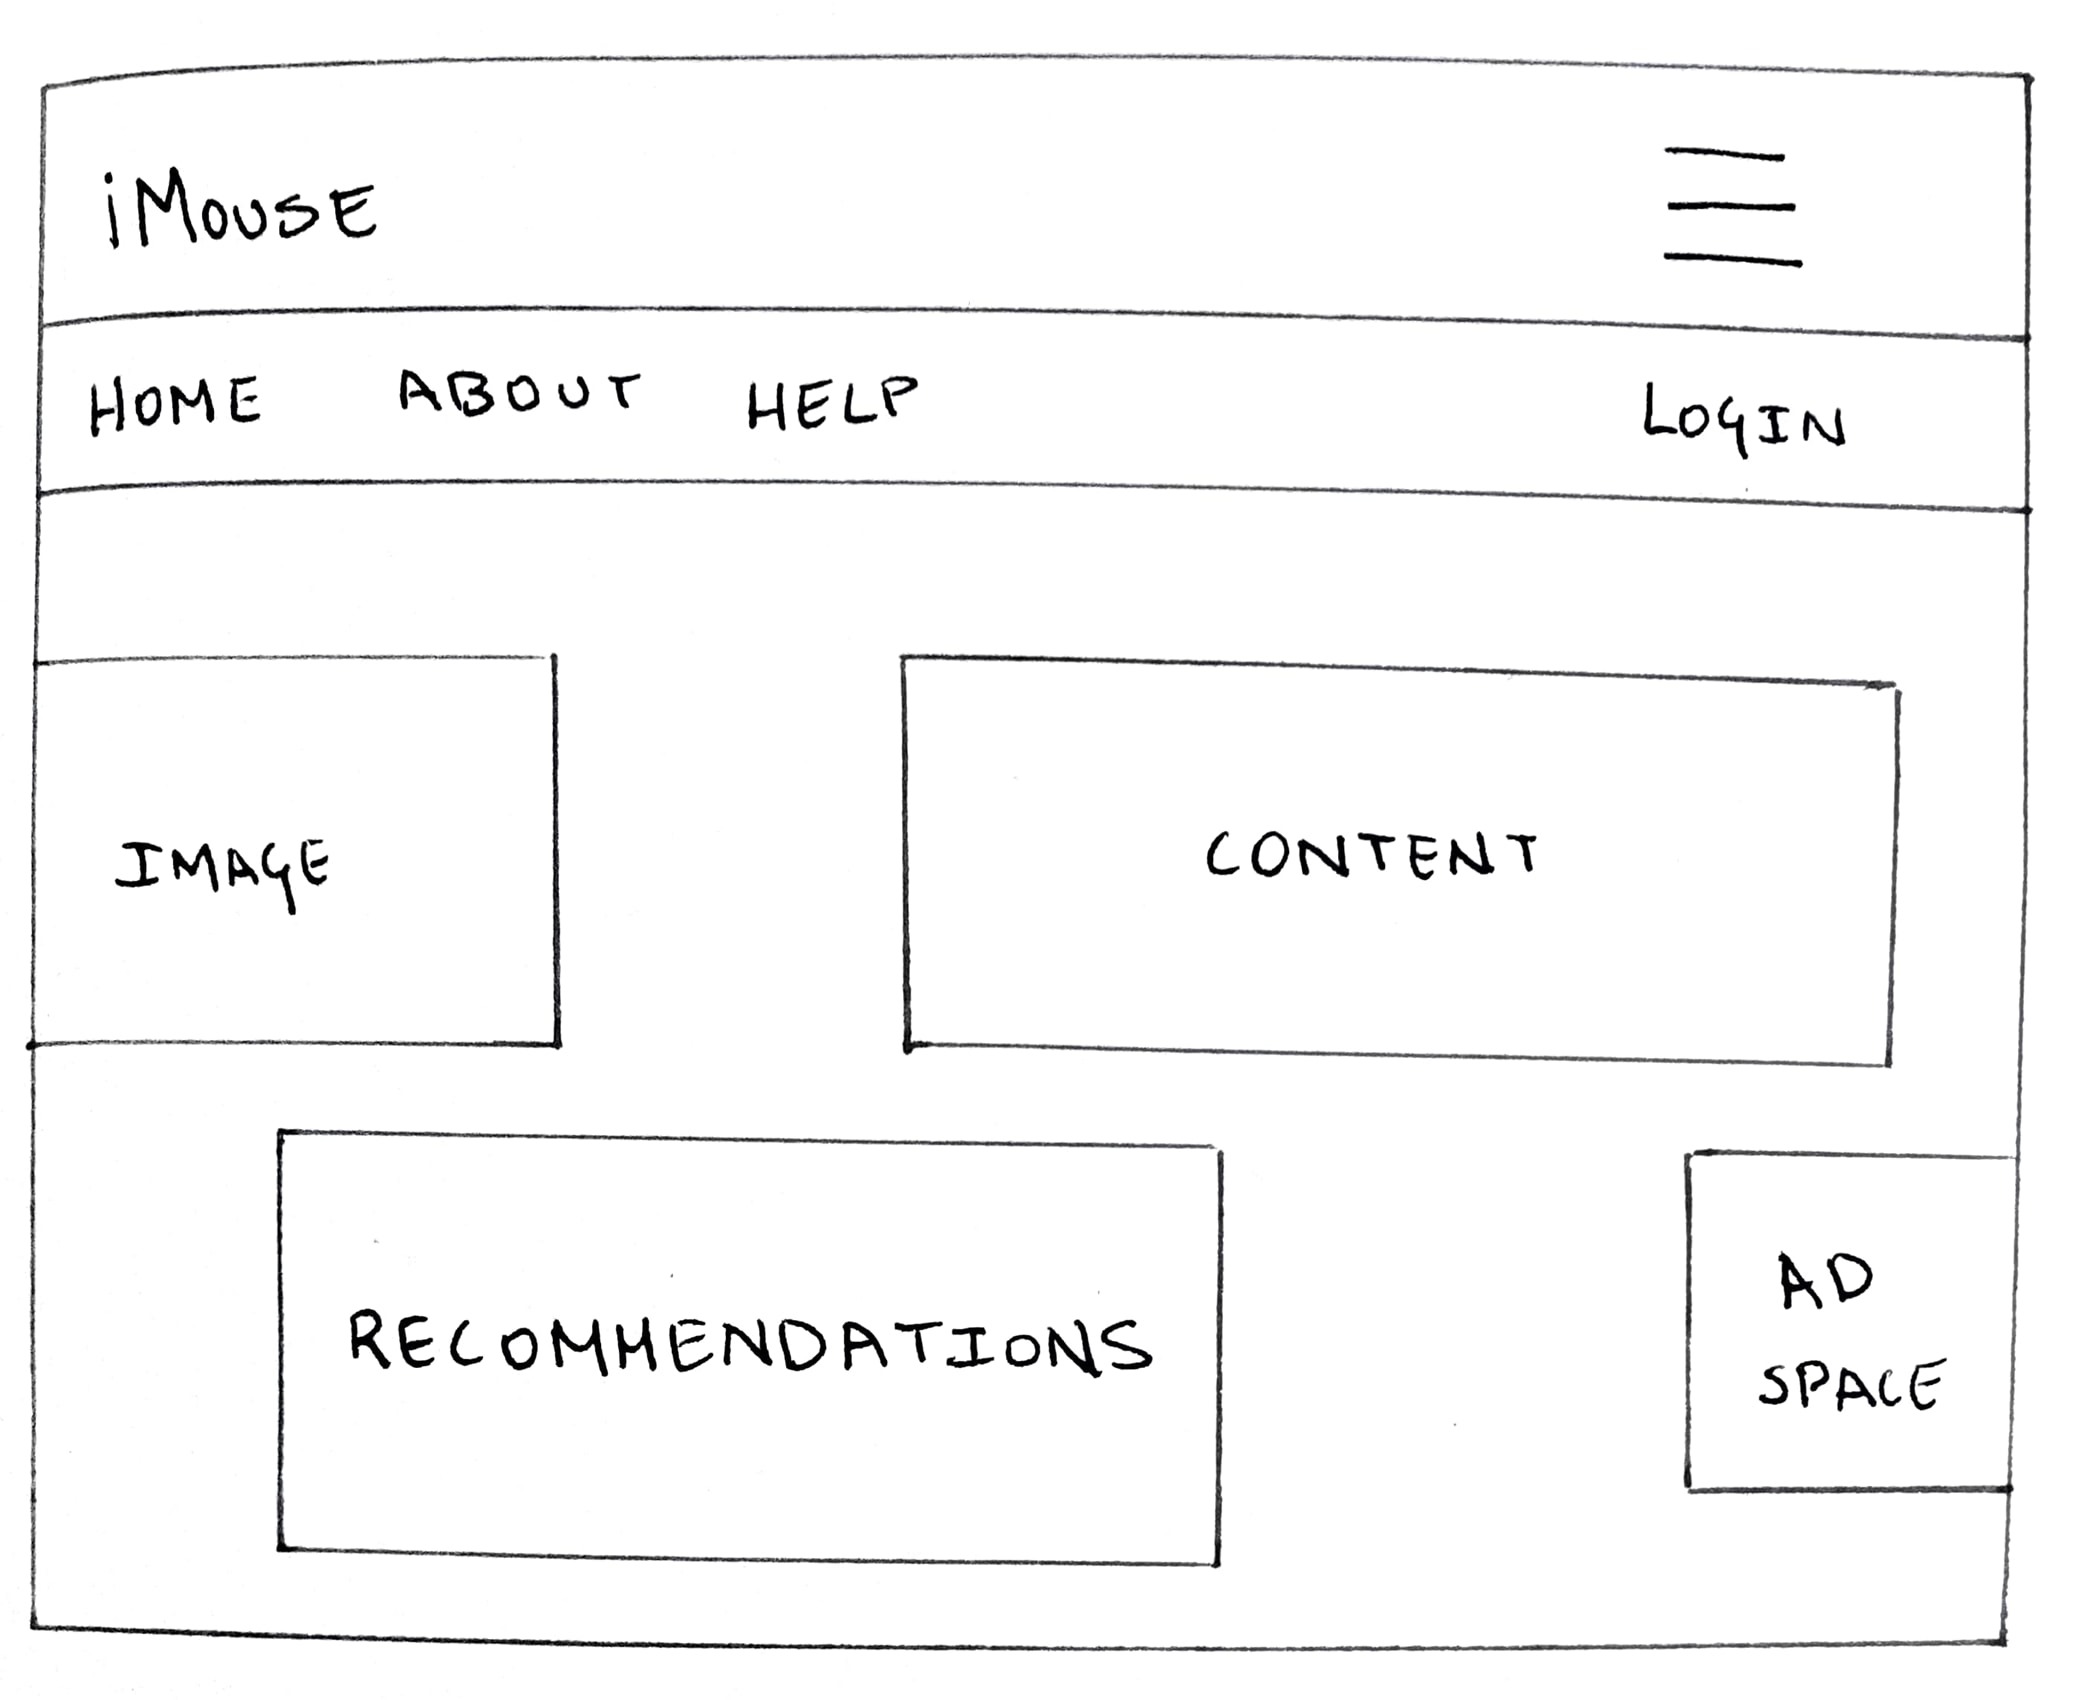 iMOUSE
HOME ABOUT HELP LOGIN
IMAGE
CONTENT
RECOMMENDATIONS
AD
SPACE